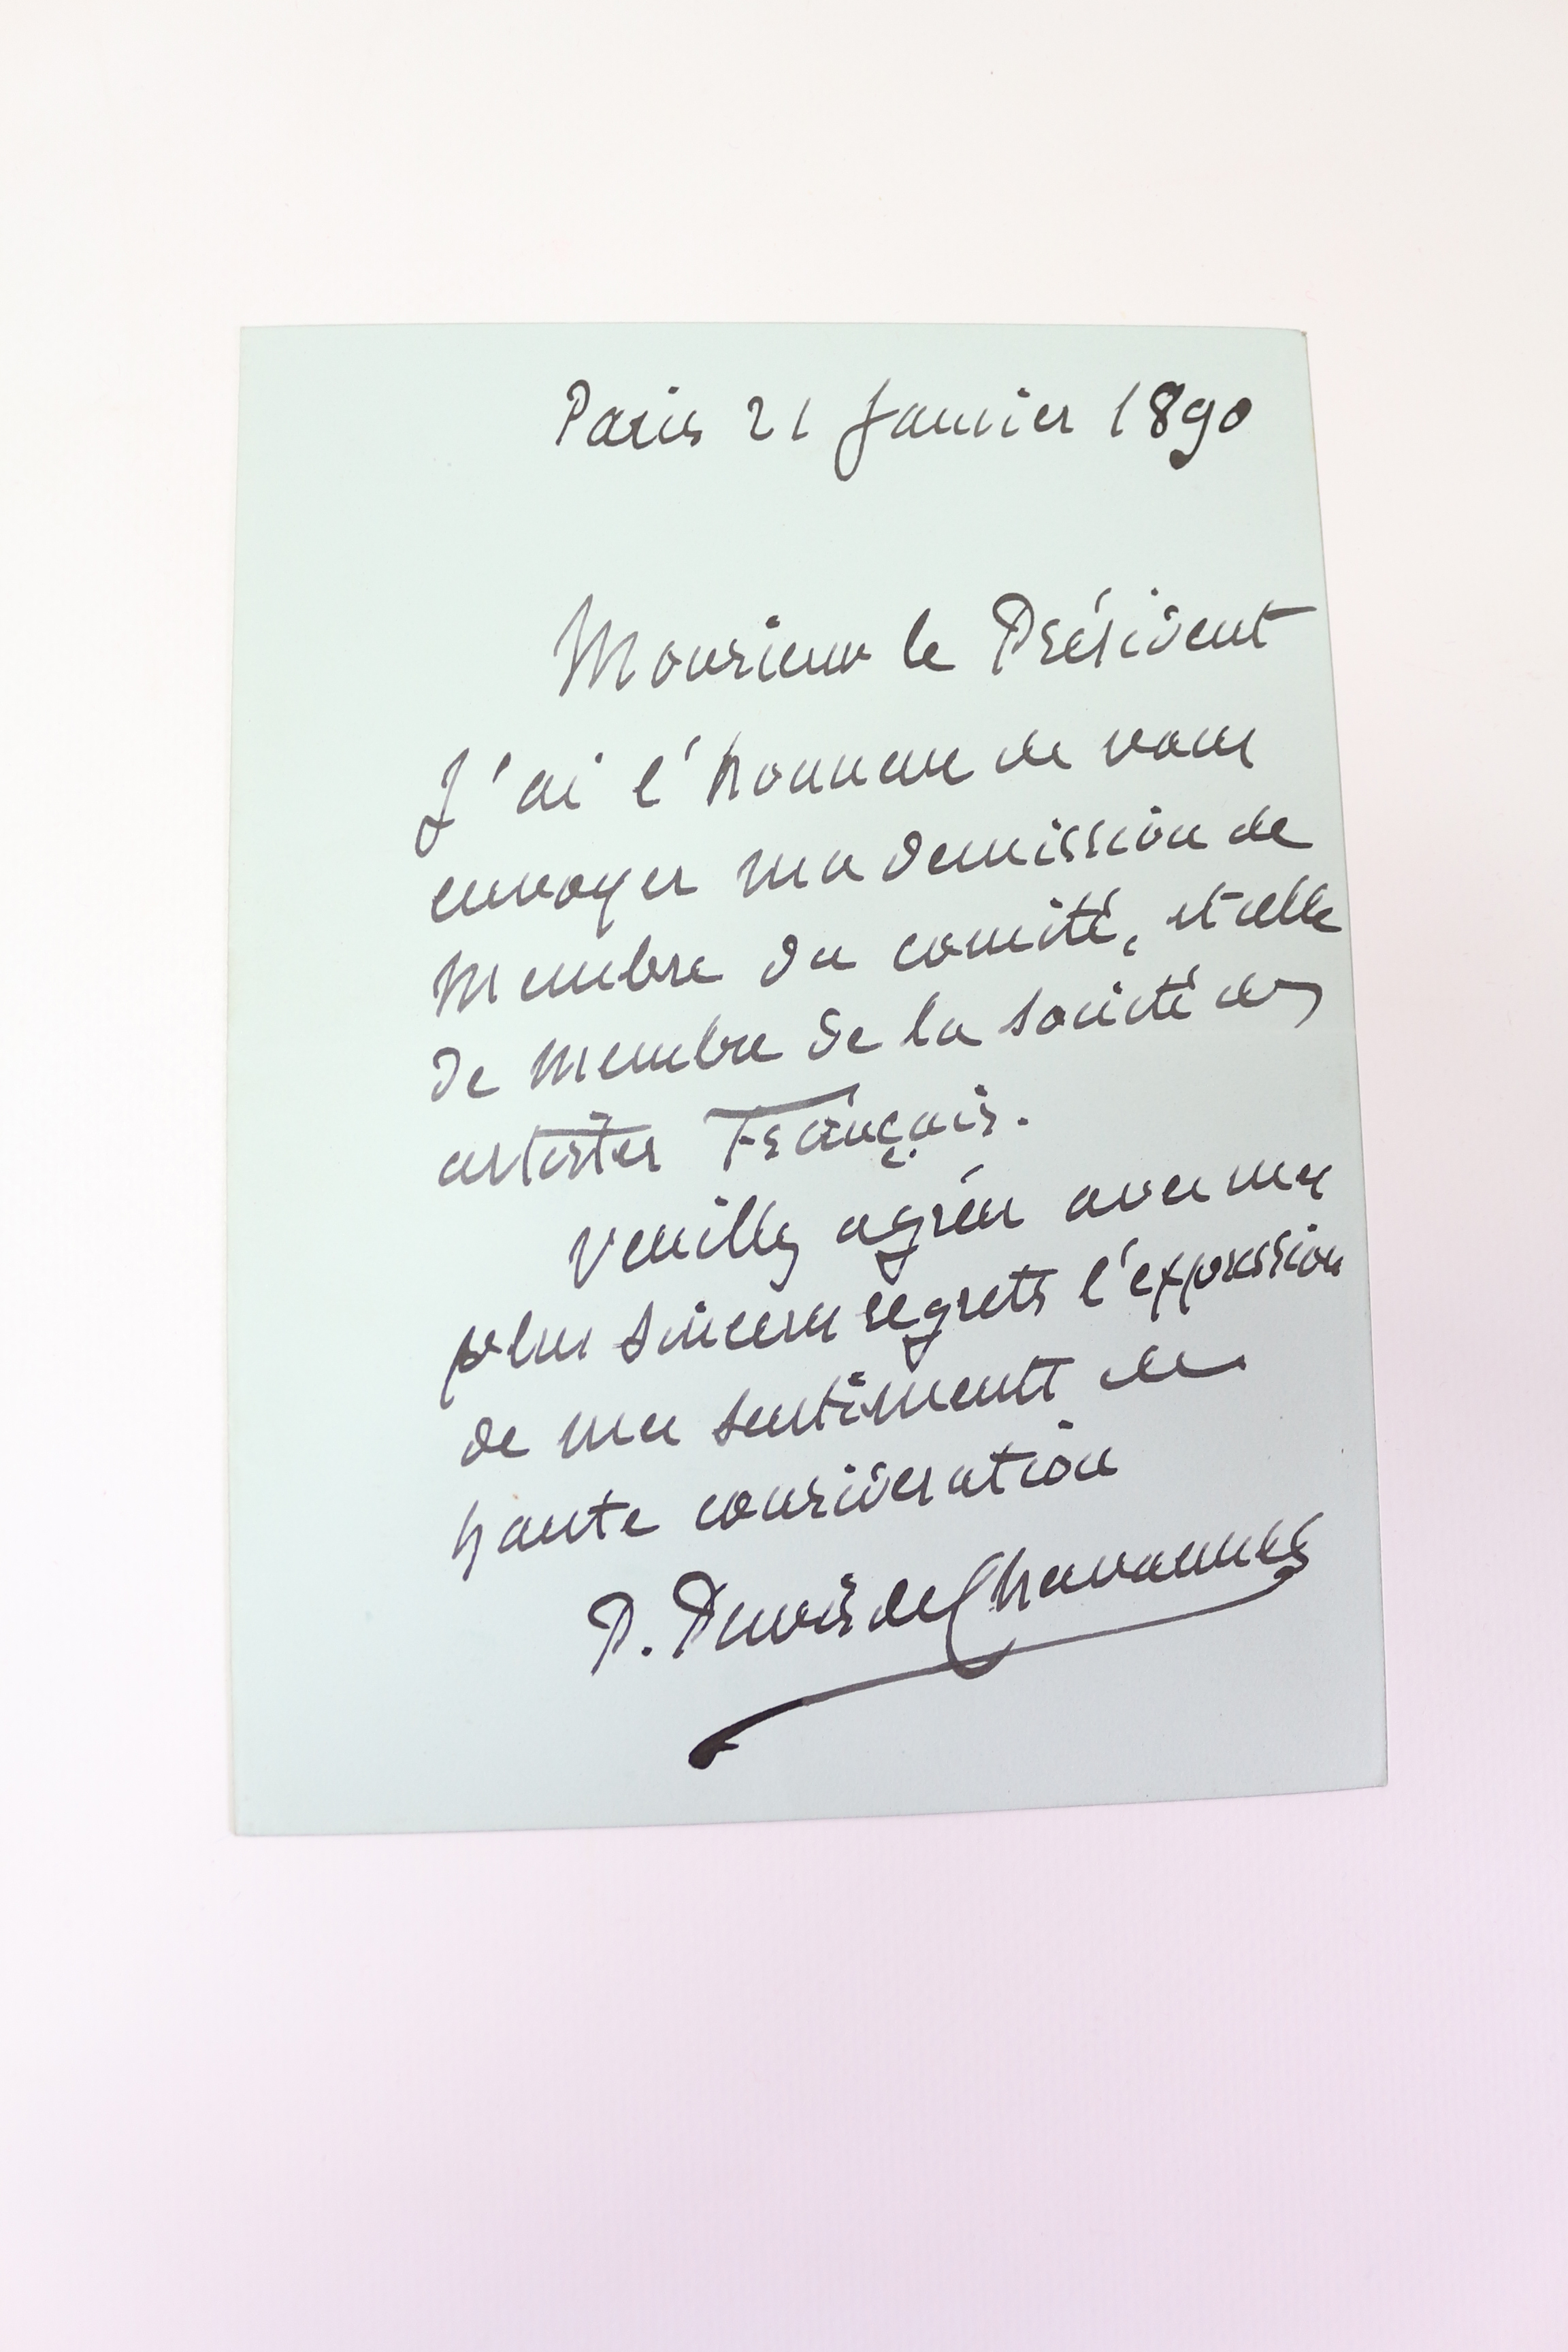 Paris 21 Janvier 1890
Monsieur le Président
J'ai l'honneur de vous
envoyer ma demission de
Membre du comité, et celle
de membre de la société des
artistes Français.
Veuillez agréer avec mes
plus sincères regrets l'expression
de mes sentiments de
haute consideration
P. Puvis de Chavannes